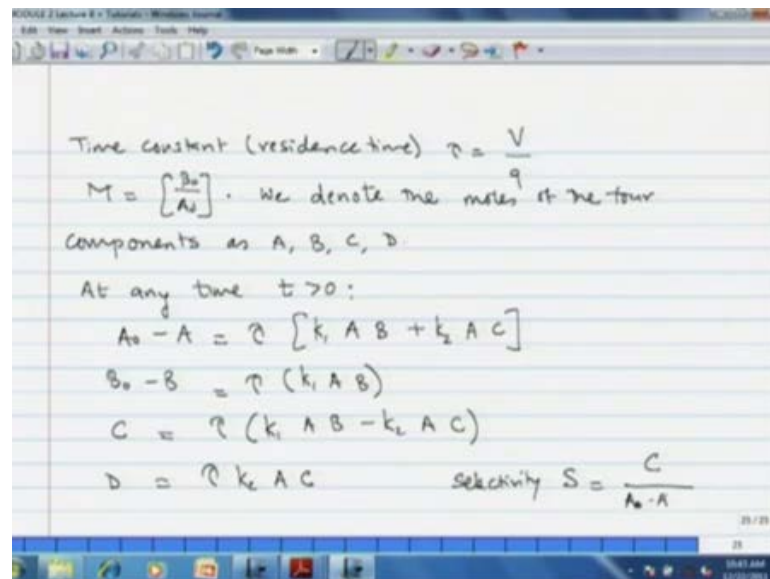 MODULE 2 Lecture 8 + Tutorials - Windows Journal
Edit View Insert Actions Tools Help
Page Width
Time constant (residence time) τ = V / q
M = [B₀/A₀] . We denote the moles of the four
components as A, B, C, D
At any time t > 0 :
A₀ - A = τ [k₁ A B + k₂ A C]
B₀ - B = τ (k₁ A B)
C = τ (k₁ A B - k₂ A C)
D = τ k₂ A C Selectivity S = C / A₀ - A
25 / 25
25
10:43 AM